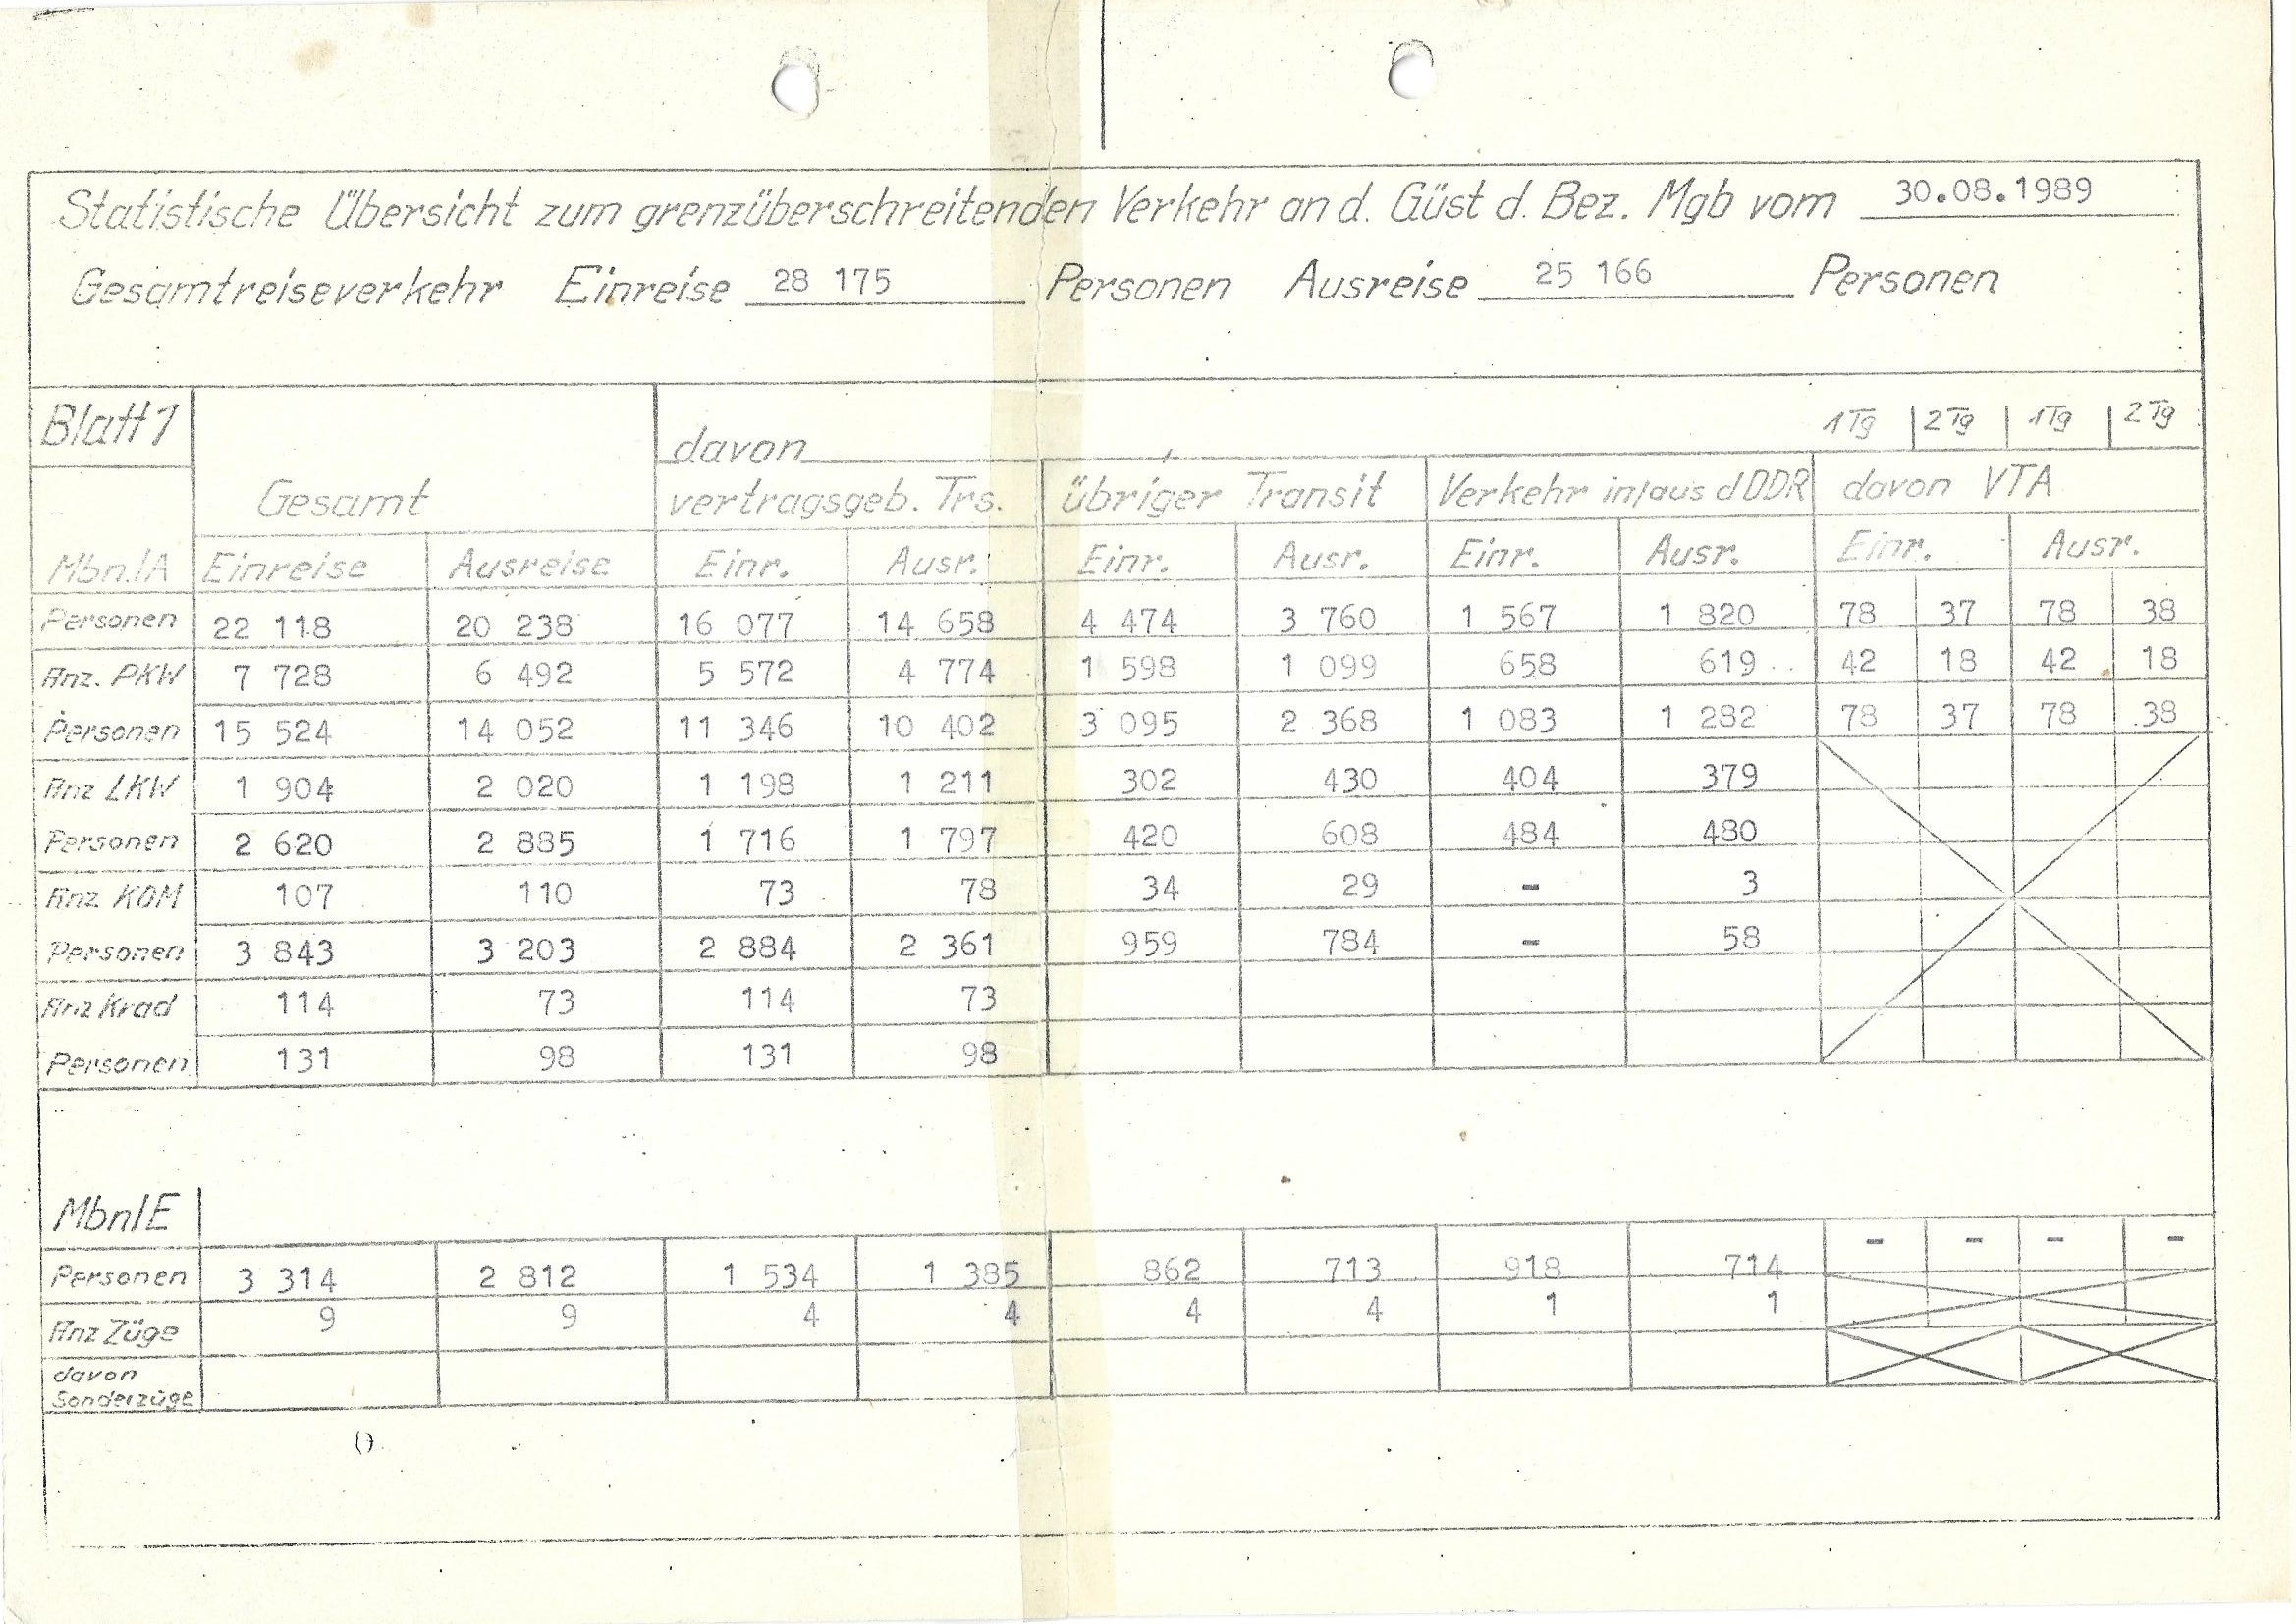 Statistische Übersicht zum grenzüberschreitenden Verkehr an d. Güst d. Bez. Mgb vom 30.08.1989
Gesamtreiseverkehr Einreise 28 175 Personen Ausreise 25 166 Personen
Blatt 1 davon 1 Tg 2 Tg 1 Tg 2 Tg
Gesamt vertragsgeb. Trs. übriger Transit Verkehr in/aus d DDR davon VTA
Mbn./A Einreise Ausreise Einr. Ausr. Einr. Ausr. Einr. Ausr. Einr. Ausr.
Personen 22 118 20 238 16 077 14 658 4 474 3 760 1 567 1 820 78 37 78 38
Anz. PKW 7 728 6 492 5 572 4 774 1 598 1 099 658 619 42 18 42 18
Personen 15 524 14 052 11 346 10 402 3 095 2 368 1 083 1 282 78 37 78 38
Anz LKW 1 904 2 020 1 198 1 211 302 430 404 379
Personen 2 620 2 885 1 716 1 797 420 608 484 480
Anz KOM 107 110 73 78 34 29 - 3
Personen 3 843 3 203 2 884 2 361 959 784 - 58
Anz Krad 114 73 114 73
Personen 131 98 131 98
Mbn/E
Personen 3 314 2 812 1 534 1 385 862 713 918 714 - - - -
Anz Züge 9 9 4 4 4 4 1 1
davon
Sonderzüge